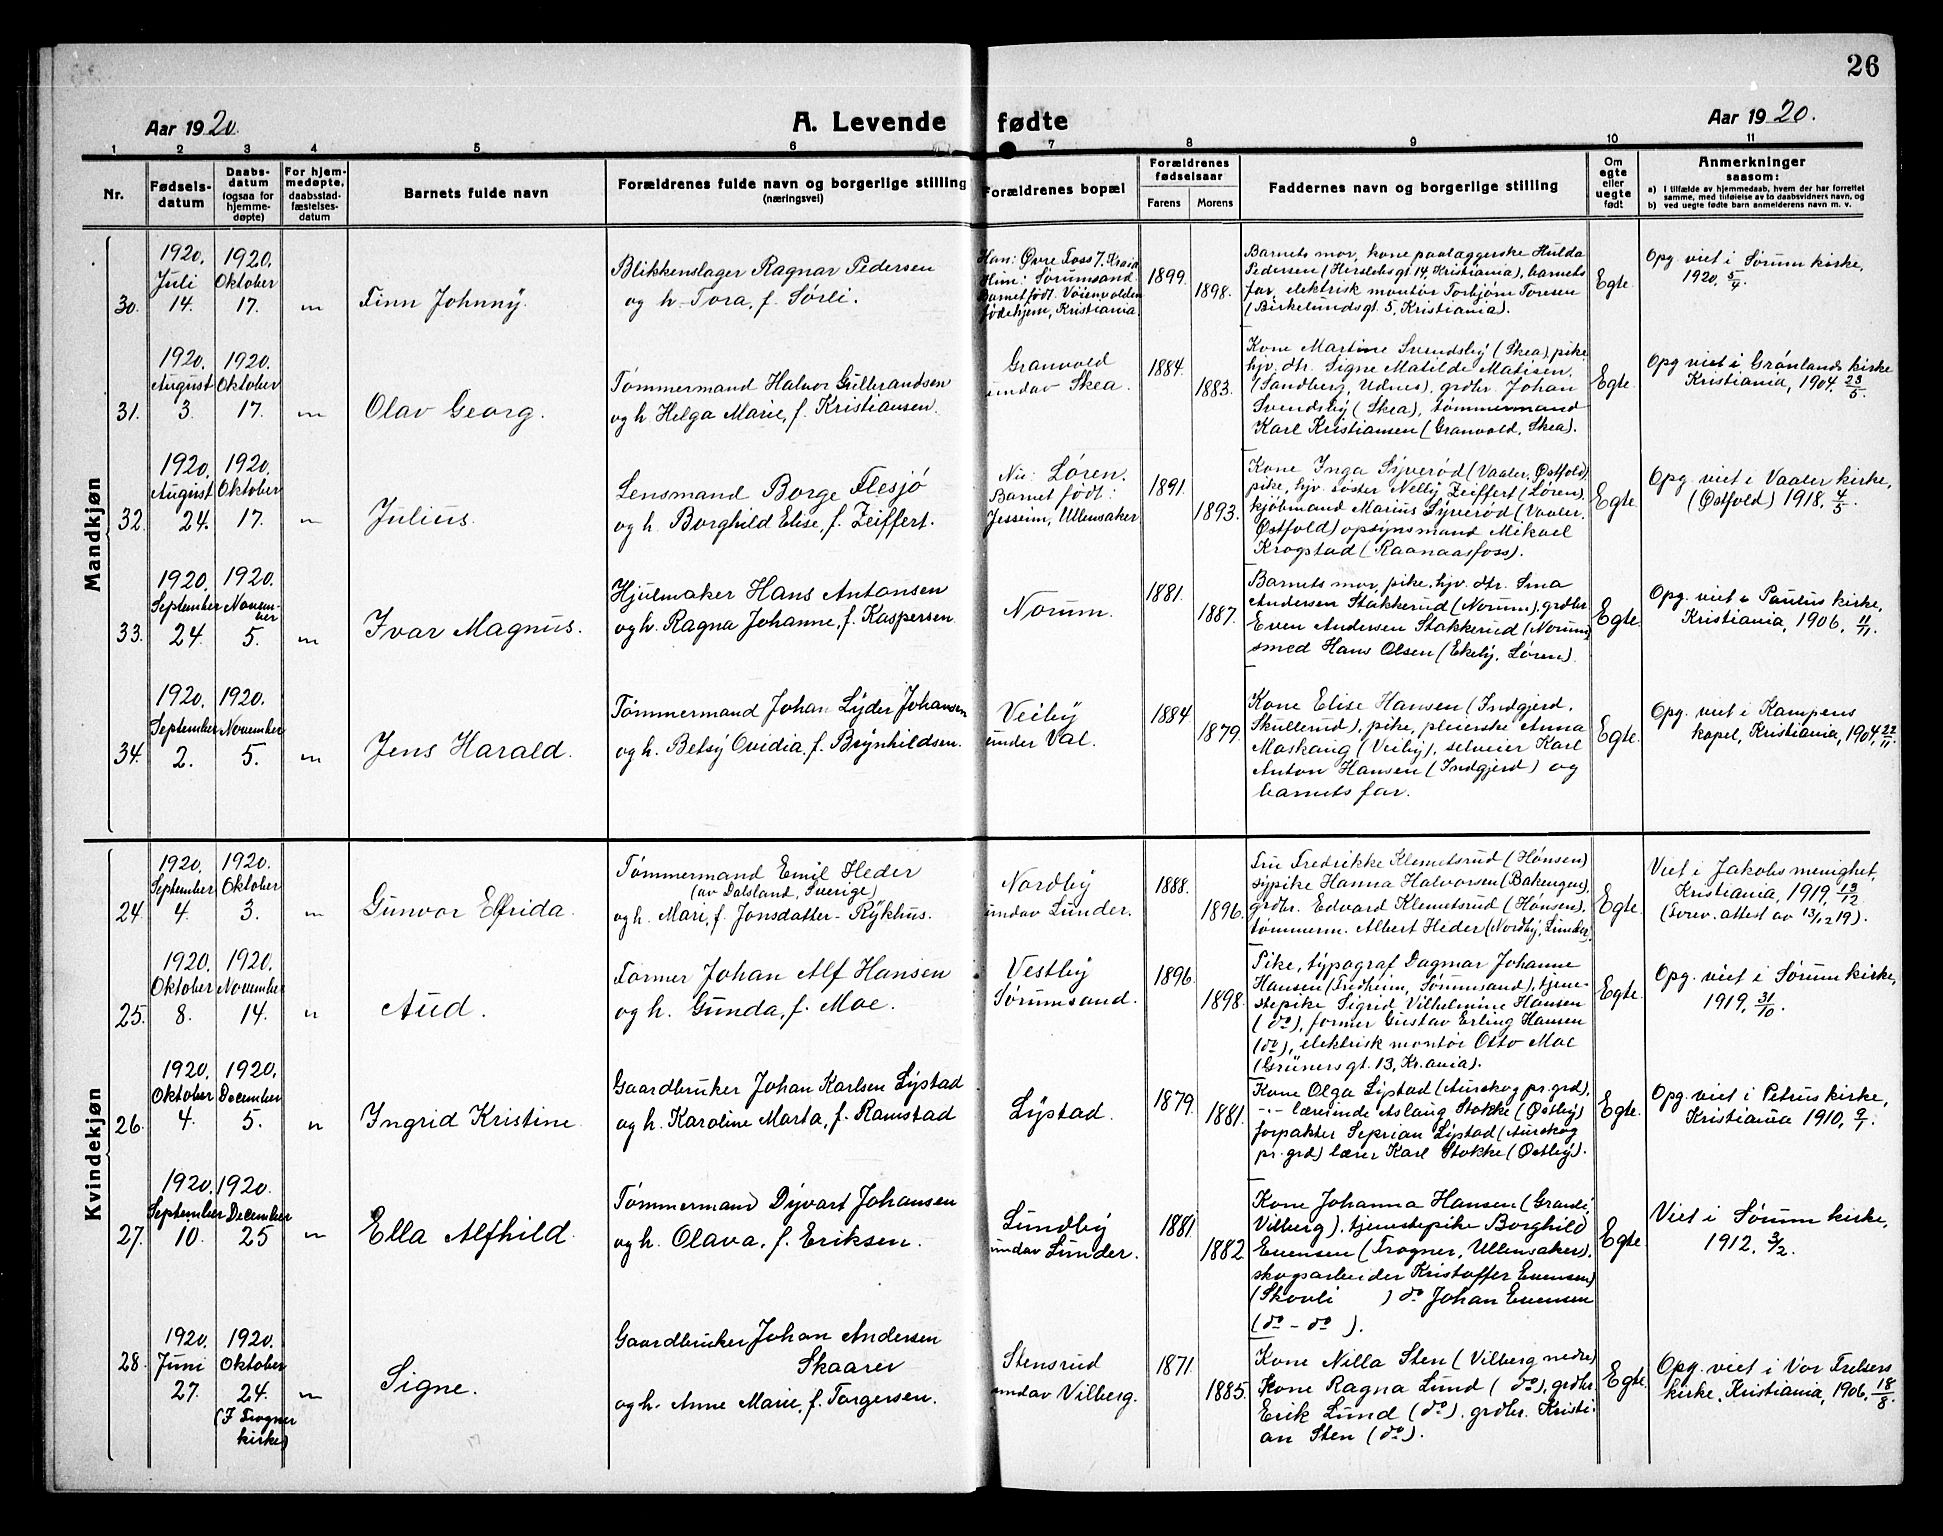 26
Aar 1920.
A. Levende fødte
Aar 1920.
1 2 3 4 5 6 7 8 9 10 11
Nr.
Fødsels-
datum
Daabs-
datum
(ogsaa for
hjemme-
døpte)
For hjem-
medøpte,
daabsstad-
fæstelses-
datum
Barnets fulde navn
Forældrenes fulde navn og borgerlige stilling
(næringsvei)
Forældrenes bopæl
Forældrenes
fødselsaar
Farens Morens
Faddernes navn og borgerlige stilling
Om
egte
eller
uegte
født
Anmerkninger
saasom:
a) I tilfælde av hjemmedaab, hvem der har forrettet
samme, med tilføielse av to daabsvidners navn, og
b) ved uegte fødte barn anmelderens navn m. v.
Mandkjøn
30.
1920.
Juli
14.
1920.
Oktober
17.
"
Finn Johnny.
Blikkenslager Ragnar Pedersen
og h. Tora, f. Sørli.
Han: Øvre Foss 7. Kraia
Hun: Sørumsand.
Barnet født. Vøienvolden
fødehjem, Kristiania.
1899.
1898.
Barnets mor, kone paalæggerske Hulda
Pedersen (Herslebsgt 14, Kristiania), barnets
far, elektrisk montør Torbjørn Toresen
(Birkelundsgt. 5, Kristiania).
Egte.
Opg. viet i Sørum kirke,
1920, 5/9.
31.
1920.
August
3.
1920.
Oktober
17.
"
Olav Georg.
Tømmermand Halvor Gulbrandsen
og h. Helga Marie, f. Kristiansen.
Granvold
undav Skea.
1884.
1883.
Kone Martine Svendsby (Skea), pike
hjv. dtr. Signe Matilde Matisen
(Sandberg, Udnes), grdbr. Johan
Svendsby (Skea), tømmermand
Karl Kristiansen (Granvold, Skea).
Egte.
Opg. viet i Grønlands kirke
Kristiania, 1904. 23/5.
32.
1920.
August
24.
1920.
Oktober
17.
"
Julius.
Lensmand Borge Flesjø
og h. Borghild Elise, f. Zeiffert.
Nu: Løren.
Barnet født:
Jessum, Ullensaker
1891.
1893.
Kone Inga Syverød (Vaaler, Østfold)
pike, hjv. søster Nelly Zeiffert (Løren),
kjøbmand Marius Syverød (Vaaler,
Østfold) opsynsmand Mikael
Krogstad (Raanaasfoss).
Egte.
Opg. viet i Vaaler kirke,
(Østfold) 1918, 4/5.
33.
1920.
September
24.
1920.
Novem-
ber
5.
"
Ivar Magnus.
Hjulmaker Hans Antonsen
og h. Ragna Johanne, f. Kaspersen
Norum.
1881.
1887.
Barnets mor, pike, hjv. dtr. Sma
Andersen Stakkerud (Norum), grdbr
Even Andersen Stakkerud (Norum)
smed Hans Olsen (Ekeby, Løren).
Egte.
Opg. viet i Paulus kirke,
Kristiania, 1906, 11/11.
34.
1920.
September
2.
1920.
November
5.
"
Jens Harald.
Tømmermand Johan Lyder Johansen
og h. Betsy Ovidia, f. Brynhildsen.
Veiby
under Val.
1884.
1879.
Kone Elise Hansen (Indgjerd,
Skullerud), pike, pleierske Anna
Maskaug (Veiby), selveier Karl
Anton Hansen (Indgjerd) og
barnets far.
Egte.
Opg. viet i Kampens
kapel, Kristiania, 1904, 22/11.
Kvindekjøn
24.
1920.
September
4.
1920.
Oktober
3.
"
Gunvor Elfrida.
Tømmermand Emil Heder
(av Dalsland, Sverige)
og h. Mari, f. Jonsdatter-Rykhus.
Nordby
undav Lunder.
1888.
1896.
Fru Fredrikke Klemetsrud (Hønsen)
sypike Hanna Halvorsen (Bakengen),
grdbr. Edvard Klemetsrud (Hønsen),
tømmerm. Albert Heder (Nordby, Lunder.
Egte.
Viet i Jakobs menighet,
Kristiania, 1919, 13/12.
(Forev. attest av 13/12 19).
25.
1920.
Oktober
8.
1920.
November
14.
"
Aud.
Former Johan Alf Hansen
og h. Gunda, f. Moe.
Vestby
Sørumsand.
1896.
1898.
Pike, typograf Dagmar Johanne
Hansen (Fredheim, Sørumsand), tjene-
stepike Sigrid Vilhelmine Hansen
(do), former Gustav Erling Hansen
(do), elektrisk montør Otto Moe
(Grünersgt. 13, Kr.ania).
Egte.
Opg. viet i Sørum kirke,
1919, 31/10.
26.
1920.
Oktober
4.
1920.
December
5.
"
Ingrid Kristine.
Gaardbruker Johan Karlsen Lystad
og h. Karoline Marta, f. Ramstad
Lystad.
1879.
1881.
Kone Olga Lystad (Aurskog pr.grd),
-"- lærerinde Aslaug Stokke (Østby)
forpakter Seprian Lystad (Aurskog
pr. grd) lærer Karl Stokke (Østby).
Egte.
Opg. viet i Petrus kirke,
Kristiania 1910, 9/7.
27.
1920.
September
10.
1920.
December
25
"
Ella Alfhild.
Tømmermand Dyvart Johansen
og h. Olava, f. Eriksen.
Lundby
undav Lunder.
1881.
1882.
Kone Johanna Hansen (Granli,
Vilberg), tjenestepike Borghild
Evensen (Trogner, Ullensaker),
skogsarbeider Kristoffer Evensen
(Skovli ) do Johan Evensen
(do - do ).
Egte.
Viet i Sørum kirke,
1912, 3/2.
28.
1920.
Juni
27.
1920.
Oktober
24.
(I Frogner
kirke)
"
Signe.
Gaardbruker Johan Andersen
Skaarer
og h. Anne Marie, f. Torgersen.
Stensrud
undav Vilberg.
1871.
1885.
Kone Nilla Sten (Vilberg nedre)
Kone Ragna Lund (do), grdbr.
Erik Lund (do). grdbr. Kristi-
an Sten (do).
Egte.
Opg. viet i Vor Frelsers
kirke, Kristiania, 1906, 18/8.